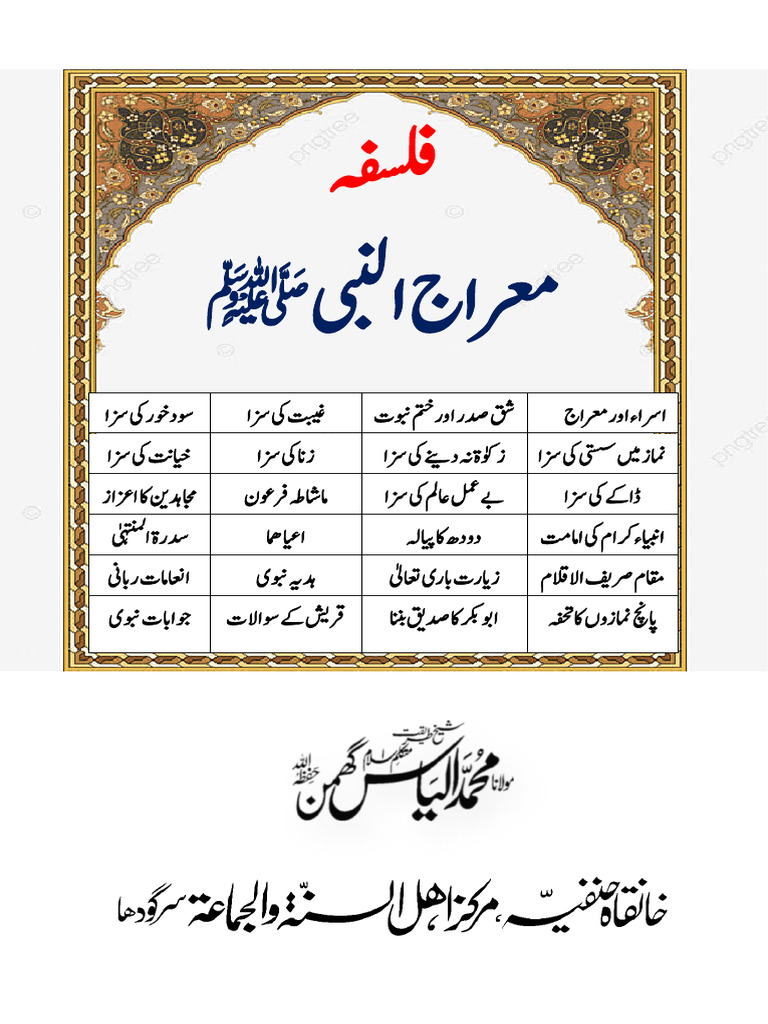 فلسفہ
معراج النبی ﷺ
اسراء اور معراج شق صدر اور ختم نبوت غیبت کی سزا سود خور کی سزا
نماز میں سستی کی سزا زکوٰۃ نہ دینے کی سزا زنا کی سزا خیانت کی سزا
ڈاکے کی سزا بے عمل عالم کی سزا ماشاطہ فرعون مجاہدین کا اعزاز
انبیاء کرام کی امامت دودھ کا پیالہ اعیاھما سدرۃ المنتہیٰ
مقام صریف الاقلام زیارت باری تعالیٰ ہدیہ نبوی انعامات ربانی
پانچ نمازوں کا تحفہ ابو بکر کا صدیق بننا قریش کے سوالات جوابات نبوی
شیخ طریقت
متکلم اسلام
مولانا محمد الیاس گھمن حفظہ اللہ
خانقاہ حنفیہ، مرکز اھل السنۃ والجماعۃ سرگودھا
pngtree
pngtree
pngtree
pngtree
pngtree